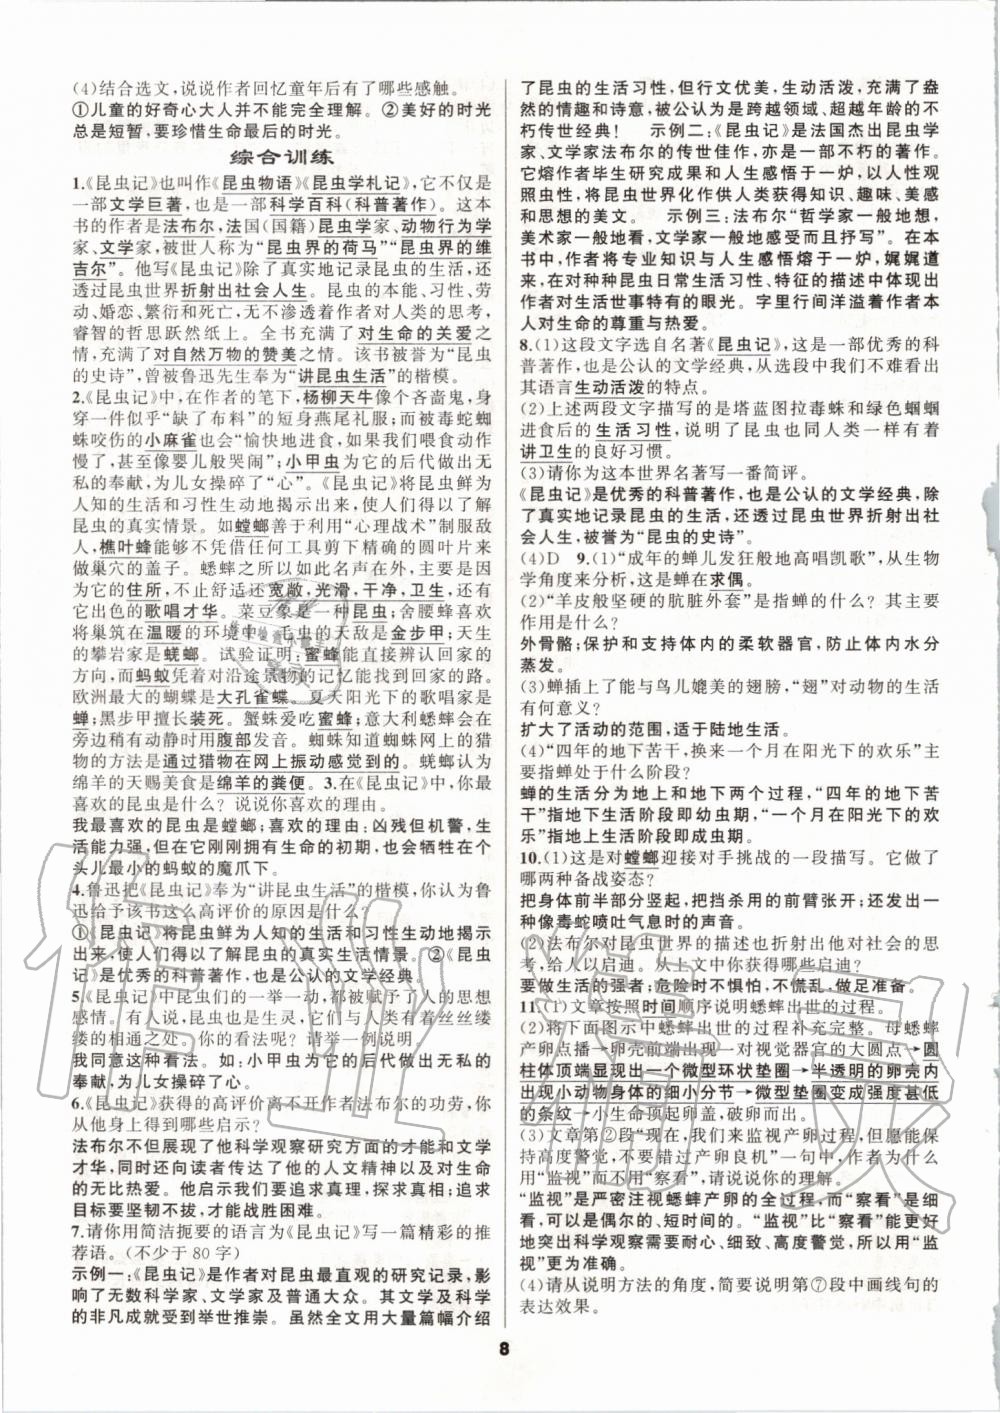 (4)结合选文,说说作者回忆童年后有了哪些感触。
①儿童的好奇心大人并不能完全理解。②美好的时光
总是短暂,要珍惜生命最后的时光。
综合训练
1.《昆虫记》也叫作《昆虫物语》《昆虫学札记》,它不仅是
一部文学巨著,也是一部科学百科(科普著作)。这本
书的作者是法布尔,法国(国籍)昆虫学家、动物行为学
家、文学家,被世人称为“昆虫界的荷马”“昆虫界的维
吉尔”。他写《昆虫记》除了真实地记录昆虫的生活,还
透过昆虫世界折射出社会人生。昆虫的本能、习性、劳
动、婚恋、繁衍和死亡,无不渗透着作者对人类的思考,
睿智的哲思跃然纸上。全书充满了对生命的关爱之
情,充满了对自然万物的赞美之情。该书被誉为“昆虫
的史诗”,曾被鲁迅先生奉为“讲昆虫生活”的楷模。
2.《昆虫记》中,在作者的笔下,杨柳天牛像个吝啬鬼,身
穿一件似乎“缺了布料”的短身燕尾礼服;而被毒蛇蜘
蛛咬伤的小麻雀也会“愉快地进食,如果我们喂食动作
慢了,他甚至会像婴儿般哭闹”;小甲虫为它的后代做出无
私的奉献,为儿女操碎了“心”。《昆虫记》将昆虫鲜为
人知的生活和习性生动地揭示出来,使人们得以了解
昆虫的真实情景。如螳螂善于利用“心理战术”制服敌
人,樵叶蜂能够不凭借任何工具剪下精确的圆叶片来
做巢穴的盖子。蟋蟀之所以如此名声在外,主要是因
为它的住所,不止舒适还宽敞,光滑,干净,卫生,还有
它出色的歌唱才华。菜豆象是一种昆虫;舍腰蜂喜欢
将巢筑在温暖的环境中。毛虫的天敌是金步甲;天生
的攀岩家是蜣螂。试验证明:蜜蜂能直接辨认回家的
方向,而蚂蚁凭着对沿途景物的记忆能找到回家的路。
欧洲最大的蝴蝶是大孔雀蝶。夏天阳光下的歌唱家是
蝉;黑步甲擅长装死。蟹蛛爱吃蜜蜂;意大利蟋蟀会在
旁边稍有动静时用腹部发音。蜘蛛知道蜘蛛网上的猎
物的方法是通过猎物在网上振动感觉到的。蜣螂认为
绵羊的天赐美食是绵羊的粪便。3.在《昆虫记》中,你最
喜欢的昆虫是什么?说说你喜欢的理由。
我最喜欢的昆虫是螳螂;喜欢的理由:凶残但机警,生
活能力强,但在它刚刚拥有生命的初期,也会牺牲在个
头儿最小的蚂蚁的魔爪下。
4.鲁迅把《昆虫记》奉为“讲昆虫生活”的楷模,你认为鲁
迅给予该书这么高评价的原因是什么?
①《昆虫记》将昆虫鲜为人知的生活和习性生动地揭示
出来,使人们得以了解昆虫的真实生活情景。②《昆虫
记》是优秀的科普著作,也是公认的文学经典。
5.《昆虫记》中昆虫们的一举一动,都被赋予了人的思想
感情。有人说,昆虫也是生灵,它们与人类有着丝丝缕
缕的相通之处。你的看法呢?请举一例说明。
我同意这种看法。如:小甲虫为它的后代做出无私的
奉献,为儿女操碎了心。
6.《昆虫记》获得的高评价离不开作者法布尔的功劳,你
从他身上得到哪些启示?
法布尔不但展现了他科学观察研究方面的才能和文学
才华,同时还向读者传达了他的人文精神以及对生命
的无比热爱。他启示我们要追求真理,探求真相;追求
目标要坚韧不拔,才能战胜困难。
7.请你用简洁扼要的语言为《昆虫记》写一篇精彩的推
荐语。(不少于80字)
示例一:《昆虫记》是作者对昆虫最直观的研究记录,影
响了无数科学家、文学家及普通大众。其文学及科学
的非凡成就受到举世推崇。虽然全文用大量篇幅介绍
了昆虫的生活习性,但行文优美,生动活泼,充满了盎
然的情趣和诗意,被公认为是跨越领域、超越年龄的不
朽传世经典! 示例二:《昆虫记》是法国杰出昆虫学
家、文学家法布尔的传世佳作,亦是一部不朽的著作。
它熔作者毕生研究成果和人生感悟于一炉,以人性观
照虫性,将昆虫世界化作供人类获得知识、趣味、美感
和思想的美文。 示例三:法布尔“哲学家一般地想,
美术家一般地看,文学家一般地感受而且抒写”。在本
书中,作者将专业知识与人生感悟熔于一炉,娓娓道
来,在对种种昆虫日常生活习性、特征的描述中体现出
作者对生活世事特有的眼光。字里行间洋溢着作者本
人对生命的尊重与热爱。
8.(1)这段文字选自名著《昆虫记》,这是一部优秀的科
普著作,也是公认的文学经典,从选段中我们不难看出
其语言生动活泼的特点。
(2)上述两段文字描写的是塔蓝图拉毒蛛和绿色蝈蝈
进食后的生活习性,说明了昆虫也同人类一样有着
讲卫生的良好习惯。
(3)请你为这本世界名著写一番简评。
《昆虫记》是优秀的科普著作,也是公认的文学经典,除
了真实地记录昆虫的生活,还透过昆虫世界折射出社会
人生,被誉为“昆虫的史诗”。
(4)D 9.(1)“成年的蝉儿发狂般地高唱凯歌”,从生物
学角度来分析,这是蝉在求偶。
(2)“羊皮般坚硬的肮脏外套”是指蝉的什么?其主要
作用是什么?
外骨骼;保护和支持体内的柔软器官,防止体内水分
蒸发。
(3)蝉插上了能与鸟儿媲美的翅膀,“翅”对动物的生活
有何意义?
扩大了活动的范围,适于陆地生活。
(4)“四年的地下苦干,换来一个月在阳光下的欢乐”主
要指蝉处于什么阶段?
蝉的生活分为地上和地下两个过程,“四年的地下苦
干”指地下生活阶段即幼虫期;“一个月在阳光下的欢
乐”指地上生活阶段即成虫期。
10.(1)这是对螳螂迎接对手挑战的一段描写。它做了
哪两种备战姿态?
把身体前半部分竖起,把挡杀用的前臂张开;还发出一
种像毒蛇喷吐气息时的声音。
(2)法布尔对昆虫世界的描述也折射出他对社会的思
考,给人以启迪。从上文中你获得哪些启迪?
要做生活的强者;危险时不惧怕,不慌乱,做足准备。
11.(1)文章按照时间顺序说明蟋蟀出世的过程。
(2)将下面图示中蟋蟀出世的过程补充完整。母蟋蟀
产卵点播→卵壳前端出现一对视觉器官的大圆点→圆
柱体顶端显现出一个微型环状垫圈→半透明的卵壳内
出现小动物身体的细小分节→微型垫圈变成强度甚低
的条纹→小生命顶起卵盖,破卵而出。
(3)文章第②段“现在,我们来监视产卵过程,但要保持
高度警觉,不要错过观察产卵良机”一句中,作者为什么
用“监视”而不用“察看”,请说说你的理解。
“监视”是严密注视蟋蟀产卵的全过程,而“察看”是细
看,可以是偶尔的、短时间的。“监视”比“察看”能更好
地突出科学观察需要耐心、细致、高度警觉,所以用“监
视”更为准确。
(4)请从说明方法的角度,简要说明第⑦段中画线句的
表达效果。
8
作业精灵